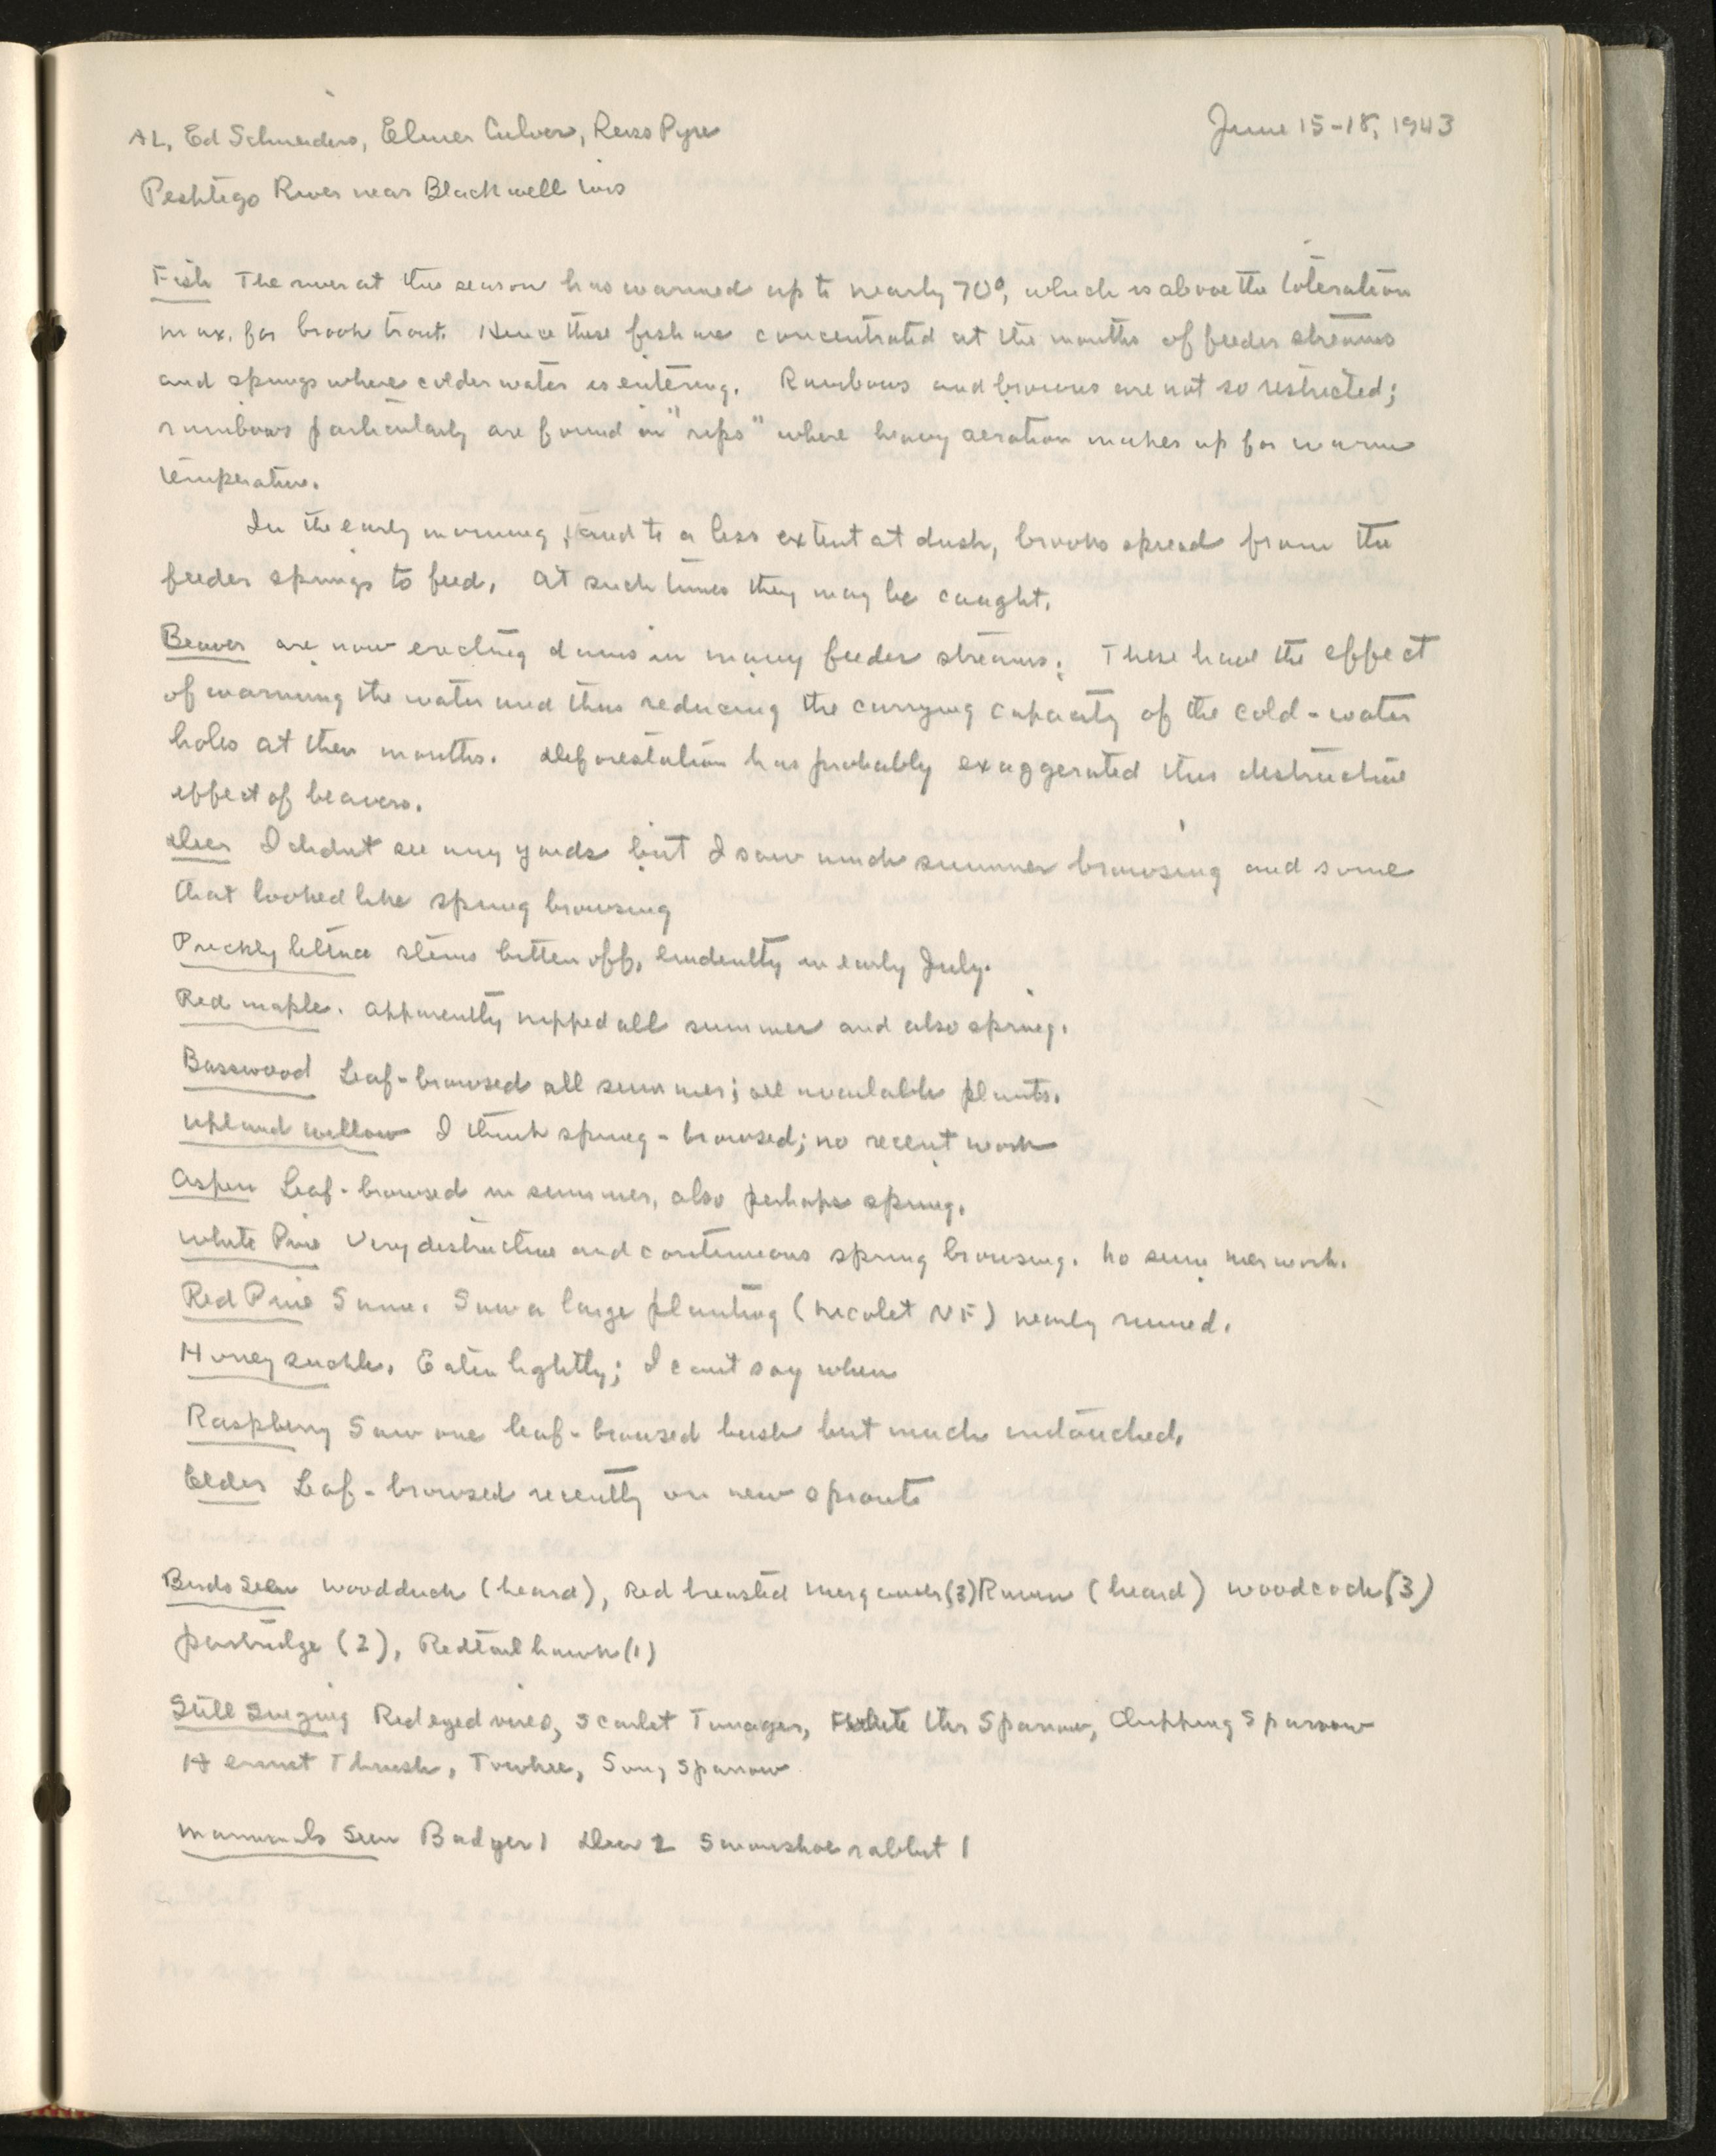 AL, Ed Schneiders, Elmer Culver, Pyre
June 15-18, 1943
Peshtigo River near Blackwell Wis
Fish The river at this season has warmed up to nearly 70°, which is above the toleration
max. for brook trout. Hence these fish are concentrated at the mouths of feeder streams
and springs where colder water is entering. Rainbows and browns are not so restricted;
rainbows particularly are found in "rips" where heavy aeration makes up for warm
temperature.
In the early morning, and to a less extent at dusk, brooks spread from the
feeder springs to feed. At such times they may be caught.
Beaver are now erecting dams in many feeder streams. These have the effect
of warming the water and thus reducing the carrying capacity of the cold-water
holes at their mouths. Deforestation has probably exaggerated this destructive
effect of beavers.
Deer I didnt see any yards but I saw much summer browsing and some
that looked like spring browsing
Prickly lettuce stems bitten off, evidently in early July.
Red maple. Apparently nipped all summer and also spring.
Basswood Leaf-browsed all summer; all available plants.
Upland willow I think spring-browsed; no recent work
Aspen Leaf-browsed in summer, also perhaps spring.
White Pine Very destructive and continuous spring browsing. No summer work.
Red Pine Same. Saw a large planting (Nicolet NF) nearly ruined.
Honeysuckle. Eaten lightly; I cant say when
Raspberry Saw one leaf-browsed bush but much untouched.
Elder Leaf-browsed recently on new sprouts
Birds Seen Woodduck (heard), Red breasted merganser (3) Raven (heard) woodcock (3)
partridge (2), Redtail hawk (1)
Still Singing Redeyed vireo, Scarlet Tanager, White thr Sparrow, Chipping Sparrow
Hermit Thrush, Towhee, Song Sparrow
Mammals Seen Badger 1 Deer 2 Snowshoe rabbit 1